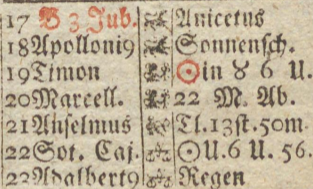 17 B 3 Jub. Anicetus
18 Apolloni9 Sonnensch.
19 Timon ☉ in ♉ 6 U.
20 Marcell. 22 M. Ab.
21 Anselmus Tl. 13st. 50m.
22 Sot. Caj. ☉ U. 6 U. 56.
22 Adalbert9 Regen